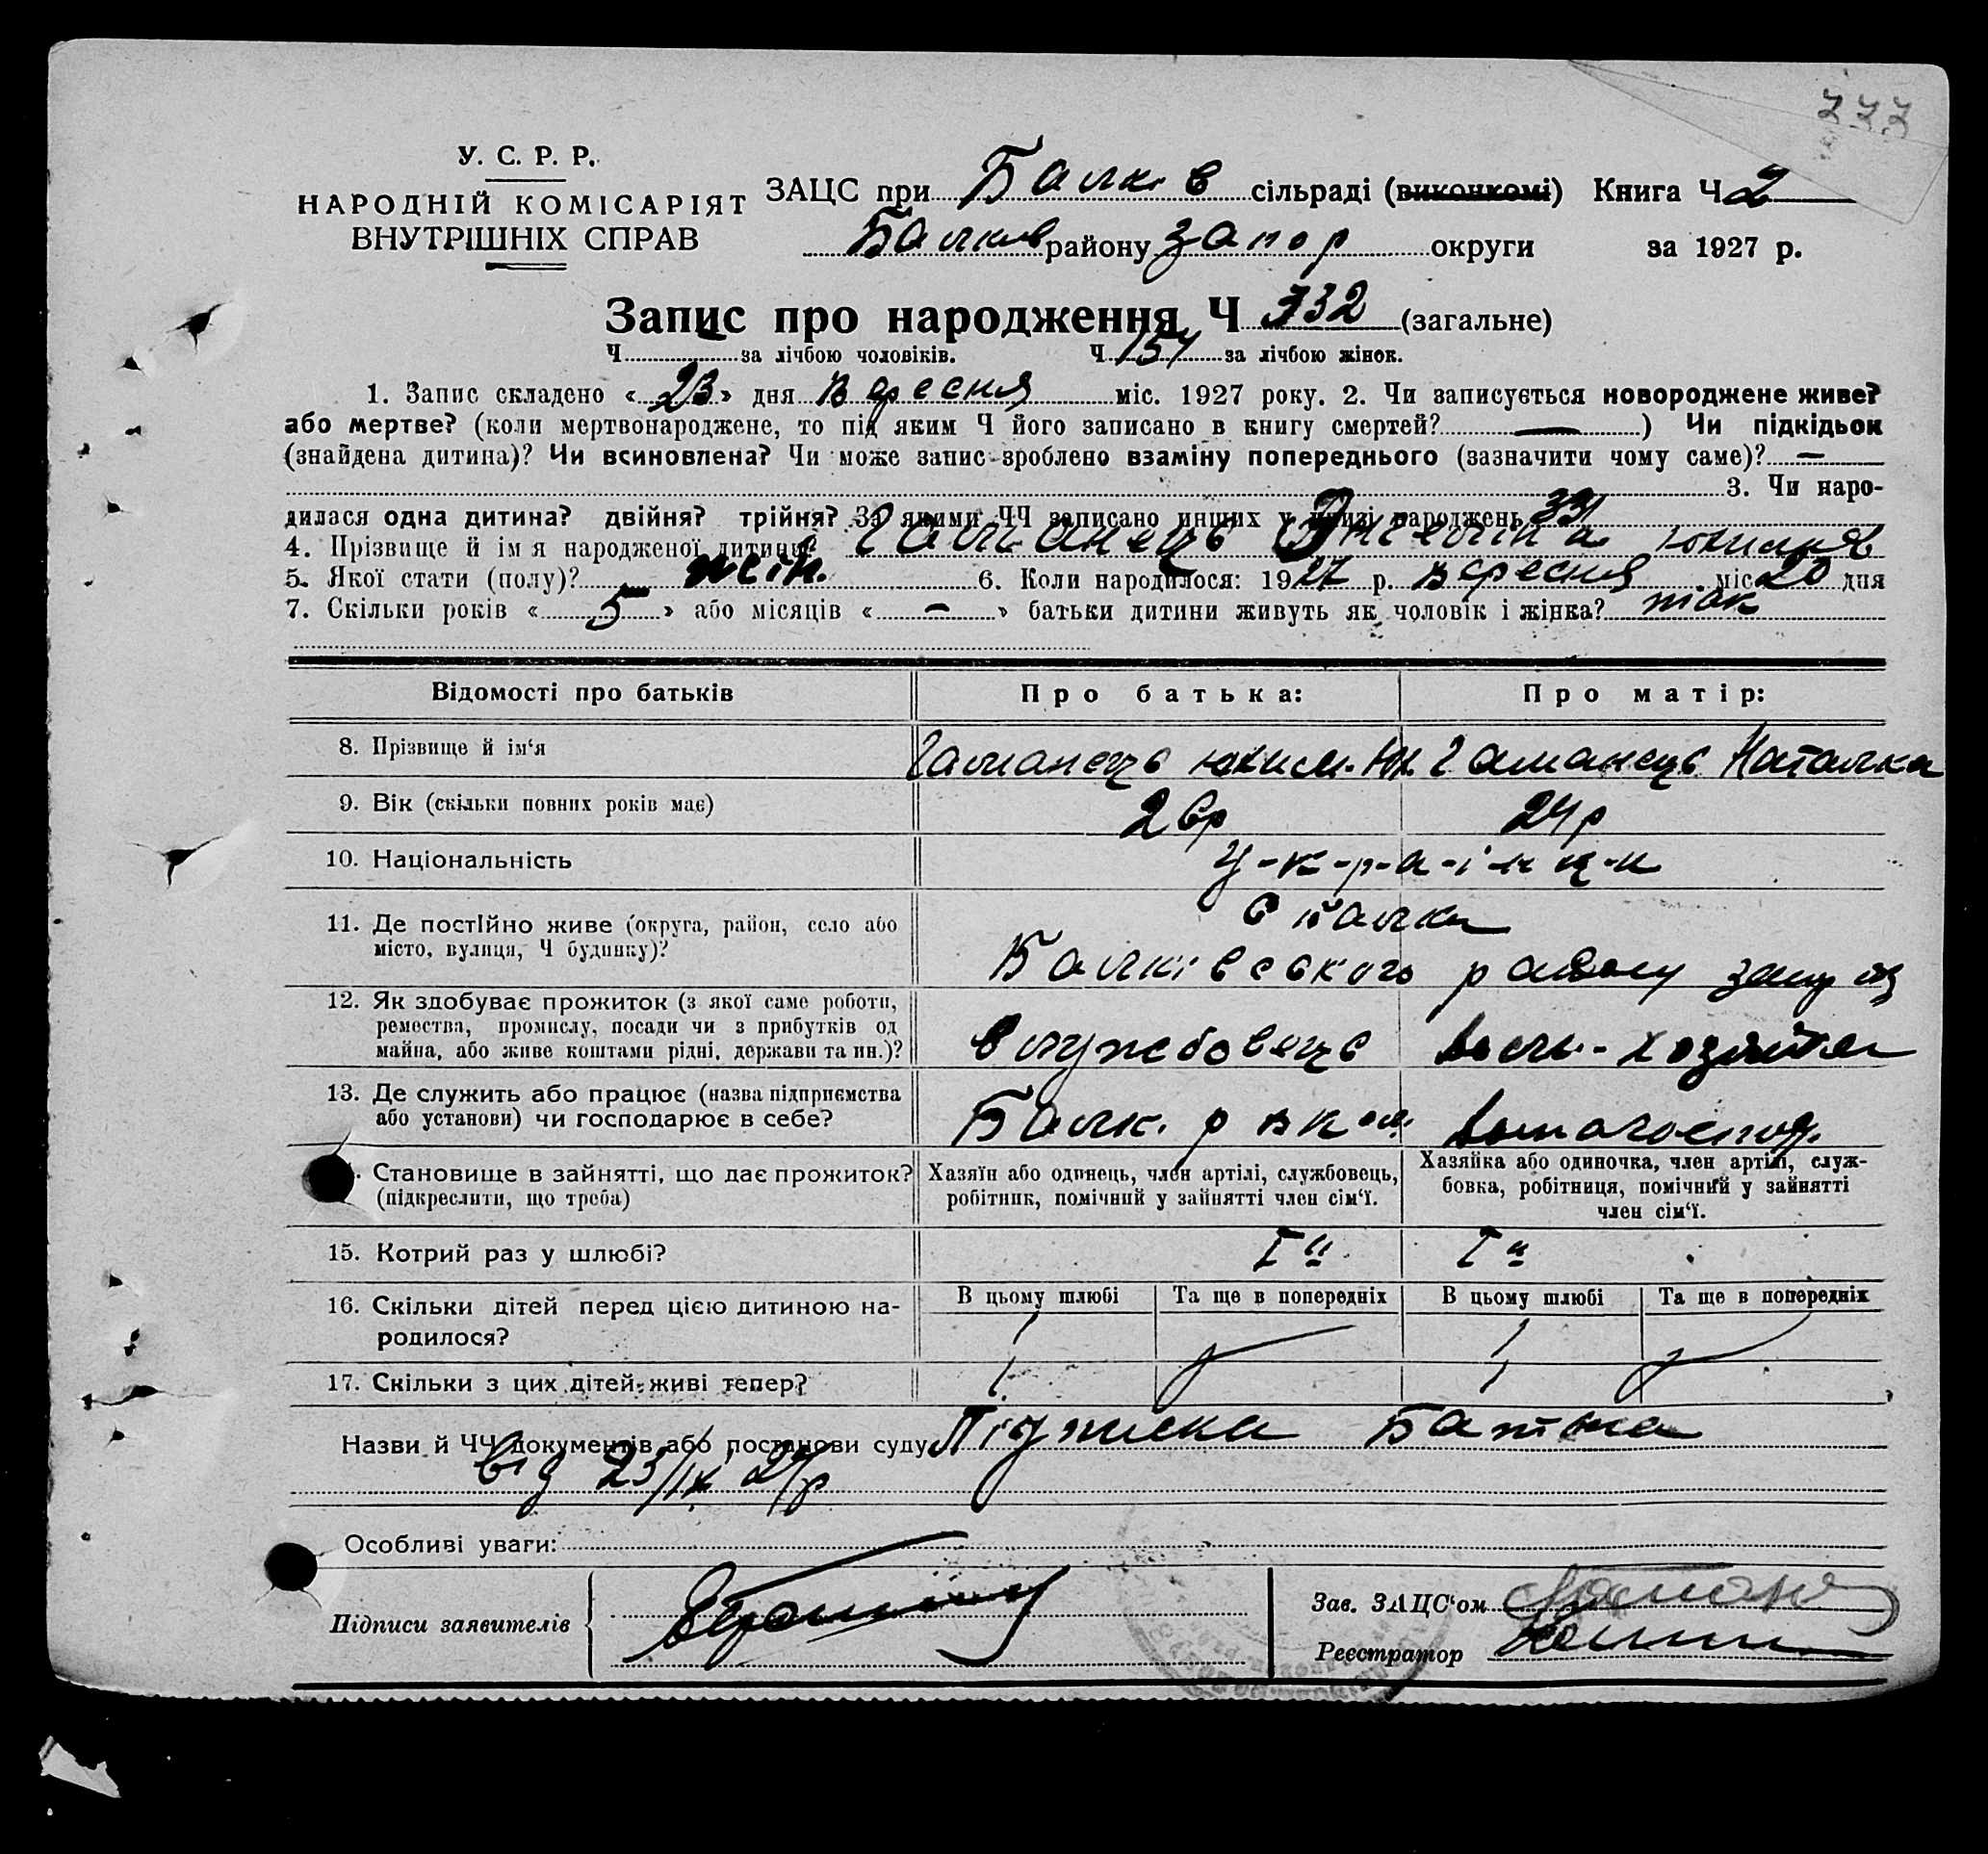 777
У. С. Р. Р.
НАРОДНІЙ КОМІСАРІЯТ
ВНУТРІШНІХ СПРАВ
ЗАЦС при Балків сільраді (виконкомі) Книга Ч 2
Балків району Запор округи за 1927 р.
Запис про народження Ч 332 (загальне)
Ч за лічбою чоловіків. Ч 157 за лічбою жінок.
1. Запис складено « 23 » дня Вересня міс. 1927 року. 2. Чи записується новороджене живе?
або мертве? (коли мертвонароджене, то під яким Ч його записано в книгу смертей? — ) Чи підкідьок
(знайдена дитина)? Чи всиновлена? Чи може запис зроблено взаміну попереднього (зазначити чому саме)? —
3. Чи наро-
дилася одна дитина? двійня? трійня? За якими ЧЧ записано инших у книзі народжень 331
4. Прізвище й ім'я народженої дитини? Гаманець
5. Якої стати (полу)? жін. 6. Коли народилося: 1927 р. Вересня міс 20 дня
7. Скільки років « 5 » або місяців « — » батьки дитини живуть як чоловік і жінка? так
Відомості про батьків Про батька: Про матір:
8. Прізвище й ім'я Гаманець Юхим. Гаманець Наталка
9. Вік (скільки повних років має) 26р 24р
10. Національність У-к-р-а-ї-н-ц-и
11. Де постійно живе (округа, район, село або
місто, вулиця, Ч будинку)?
с Балки
Балківського району
12. Як здобуває прожиток (з якої саме роботи,
ремества, промислу, посади чи з прибутків од
майна, або живе коштами рідні, держави та ин.)?
Службовець
13. Де служить або працює (назва підприємства
або установи) чи господарює в себе?
Балк. рвком. Домогоспод.
. Становище в зайнятті, що дає прожиток?
(підкреслити, що треба)
Хазяїн або одинець, член артілі, службовець,
робітник, помічний у зайнятті член сім'ї.
Хазяйка або одиночка, член артілі, служ-
бовка, робітниця, помічний у зайнятті
член сім'ї.
15. Котрий раз у шлюбі? Iй Iй
16. Скільки дітей перед цією дитиною на-
родилося?
В цьому шлюбі Та ще в попередніх В цьому шлюбі Та ще в попередніх
1 1
17. Скільки з цих дітей живі тепер? 1 1
Назви й ЧЧ документів або постанови суду Підписка Батька
від 23/IX 27р
Особливі уваги:
Підписи заявителів
Зав. ЗАЦС'ом
Реєстратор